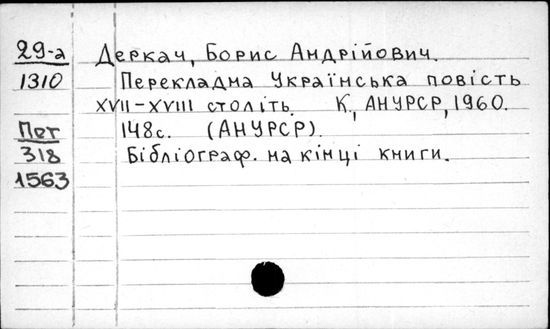 29-а Деркач, Борис Андрійович.
1310 Перекладна Українська повість
XVII-XVIII століть. К, АНУРСР, 1960.
Пот 148с. (АНУРСР).
318 Бібліограф. на кінці книги.
1563